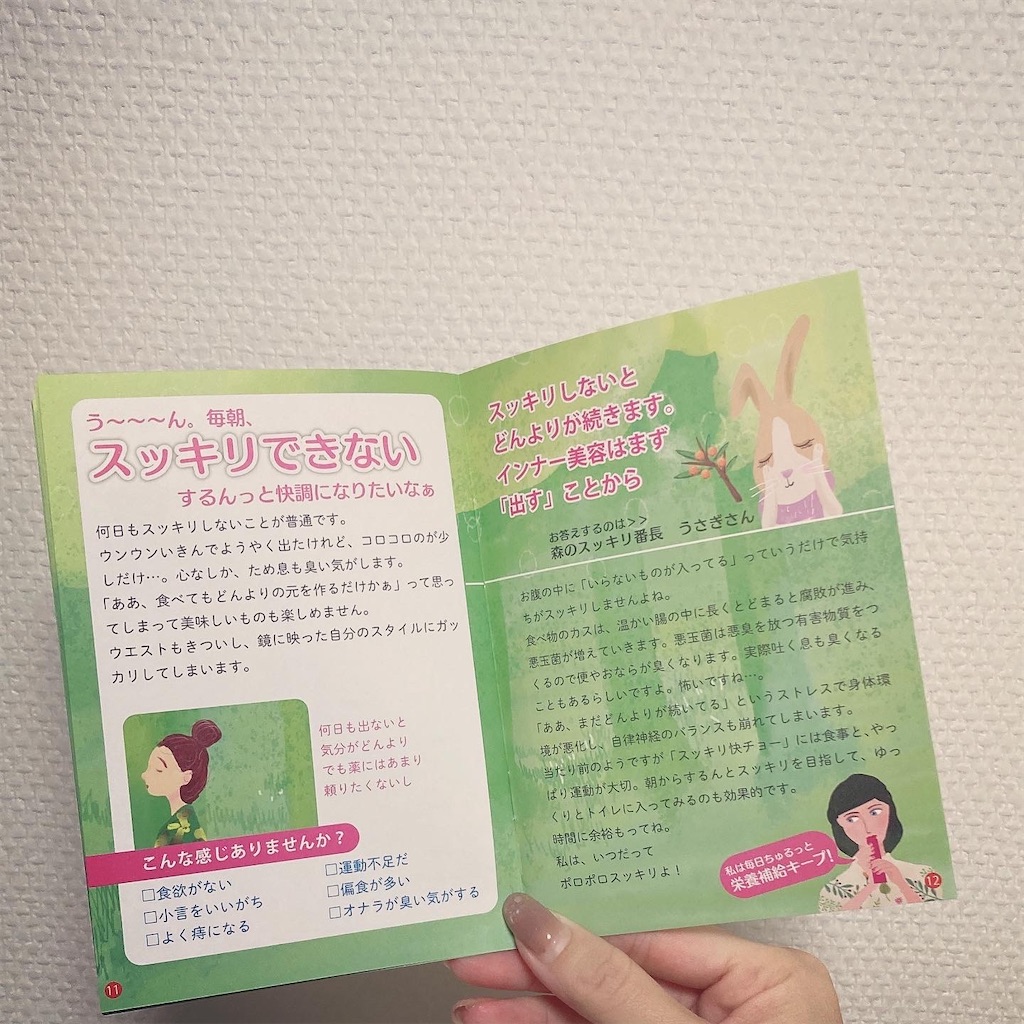 う〜〜〜ん。毎朝、
スッキリできない
するんっと快調になりたいなぁ
何日もスッキリしないことが普通です。
ウンウンいきんでようやく出たけれど、コロコロのが少
しだけ…。心なしか、ため息も臭い気がします。
「ああ、食べてもどんよりの元を作るだけかぁ」って思っ
てしまって美味しいものも楽しめません。
ウエストもきついし、鏡に映った自分のスタイルにガッ
カリしてしまいます。
何日も出ないと
気分がどんより
でも薬にはあまり
頼りたくないし
こんな感じありませんか?
□食欲がない
□小言をいいがち
□よく痔になる
□運動不足だ
□偏食が多い
□オナラが臭い気がする
11
スッキリしないと
どんよりが続きます。
インナー美容はまず
「出す」ことから
お答えするのは>>
森のスッキリ番長 うさぎさん
お腹の中に「いらないものが入ってる」っていうだけで気持
ちがスッキリしませんよね。
食べ物のカスは、温かい腸の中に長くとどまると腐敗が進み、
悪玉菌が増えていきます。悪玉菌は悪臭を放つ有害物質をつ
くるので便やおならが臭くなります。実際吐く息も臭くなる
こともあるらしいですよ。怖いですね…。
「ああ、まだどんよりが続いてる」というストレスで身体環
境が悪化し、自律神経のバランスも崩れてしまいます。
当たり前のようですが「スッキリ快チョー」には食事と、やっ
ぱり運動が大切。朝からするんとスッキリを目指して、ゆっ
くりとトイレに入ってみるのも効果的です。
時間に余裕もってね。
私は、いつだって
ポロポロスッキリよ!
私は毎日ちゅるっと
栄養補給キープ!
12